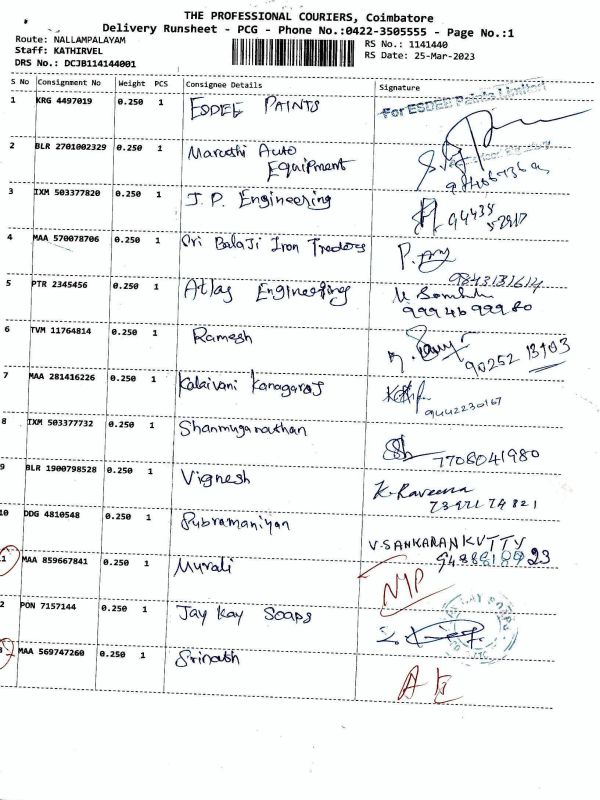 THE PROFESSIONAL COURIERS, Coimbatore
Delivery Runsheet - PCG - Phone No.:0422-3505555 - Page No.:1
Route: NALLAMPALAYAM
RS No.: 1141440
Staff: KATHIRVEL
RS Date: 25-Mar-2023
DRS No.: DCJB114144001
S No Consignment No Weight PCS Consignee Details Signature
1 KRG 4497019 0.250 1 ESDEE PAINTS For ESDEE Paints Limited
2 BLR 2701002329 0.250 1 Maruthi Auto
Equipment
3 IXM 503377820 0.250 1 J.P. Engineering 94435
4 MAA 570078706 0.250 1 Sri Balaji Iron Traders
9843131614
5 PTR 2345456 0.250 1 Atlas Engineering
99946 99980
6 TVM 11764814 0.250 1 Ramesh
90252 13403
7 MAA 281416226 0.250 1 Kalaivani Kanagaraj
9442230167
8 IXM 503377732 0.250 1 Shanmuganathan
7708041980
9 BLR 1900798528 0.250 1 Vignesh K. Raveena
10 DDG 4810548 0.250 1 Subramaniyan V. SANKARANKUTTY
11 MAA 859667841 0.250 1 Murali
2 PON 7157144 0.250 1 Jay Kay Soaps
3 MAA 569747260 0.250 1 Srinath